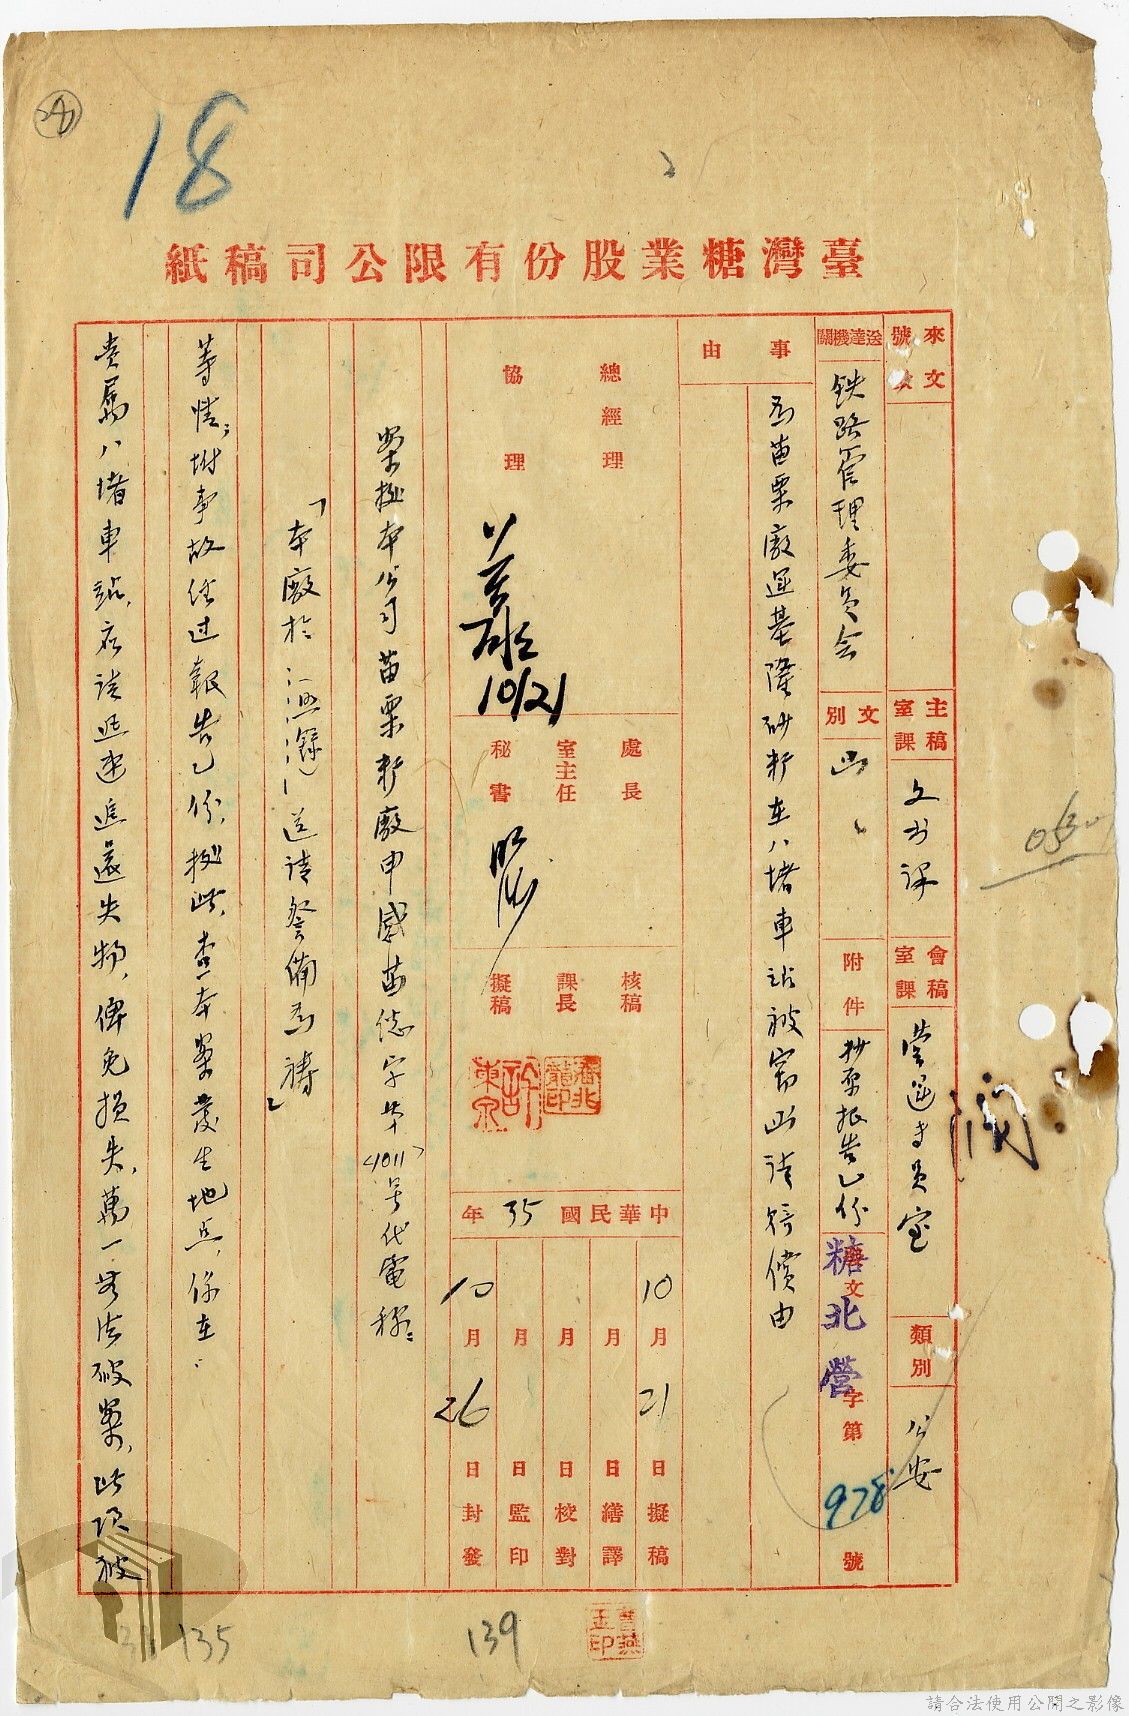 18
臺灣糖業股份有限公司稿紙
來文
號
送達機關
鉄路管理委員会
文別
函
附件
抄原报告乙份
主稿室課
文书課
會稿室課
營運专員室
類別
公安
文
糖北營
字第
978
號
事由
為苗栗廠運基隆砂糖在八堵車站被竊函請賠償由
總經理
協理
10/21
處長
室主任
秘書
核稿
課長
擬稿
中華民國35年
10月21日擬稿
月日繕譯
月日校對
月日監印
10月26日封發
案据本公司苗栗糖廠申感苗總字第(4011)号代電称：
「本廠於……(照錄)……送請察備為禱」
等情，附事故经过報告乙份，据此，查本案發生地点，係在
贵属八堵車站，应请迅速追還失物，俾免損失，萬一無法破案，此項被
135
139
0530
請合法使用公開之影像